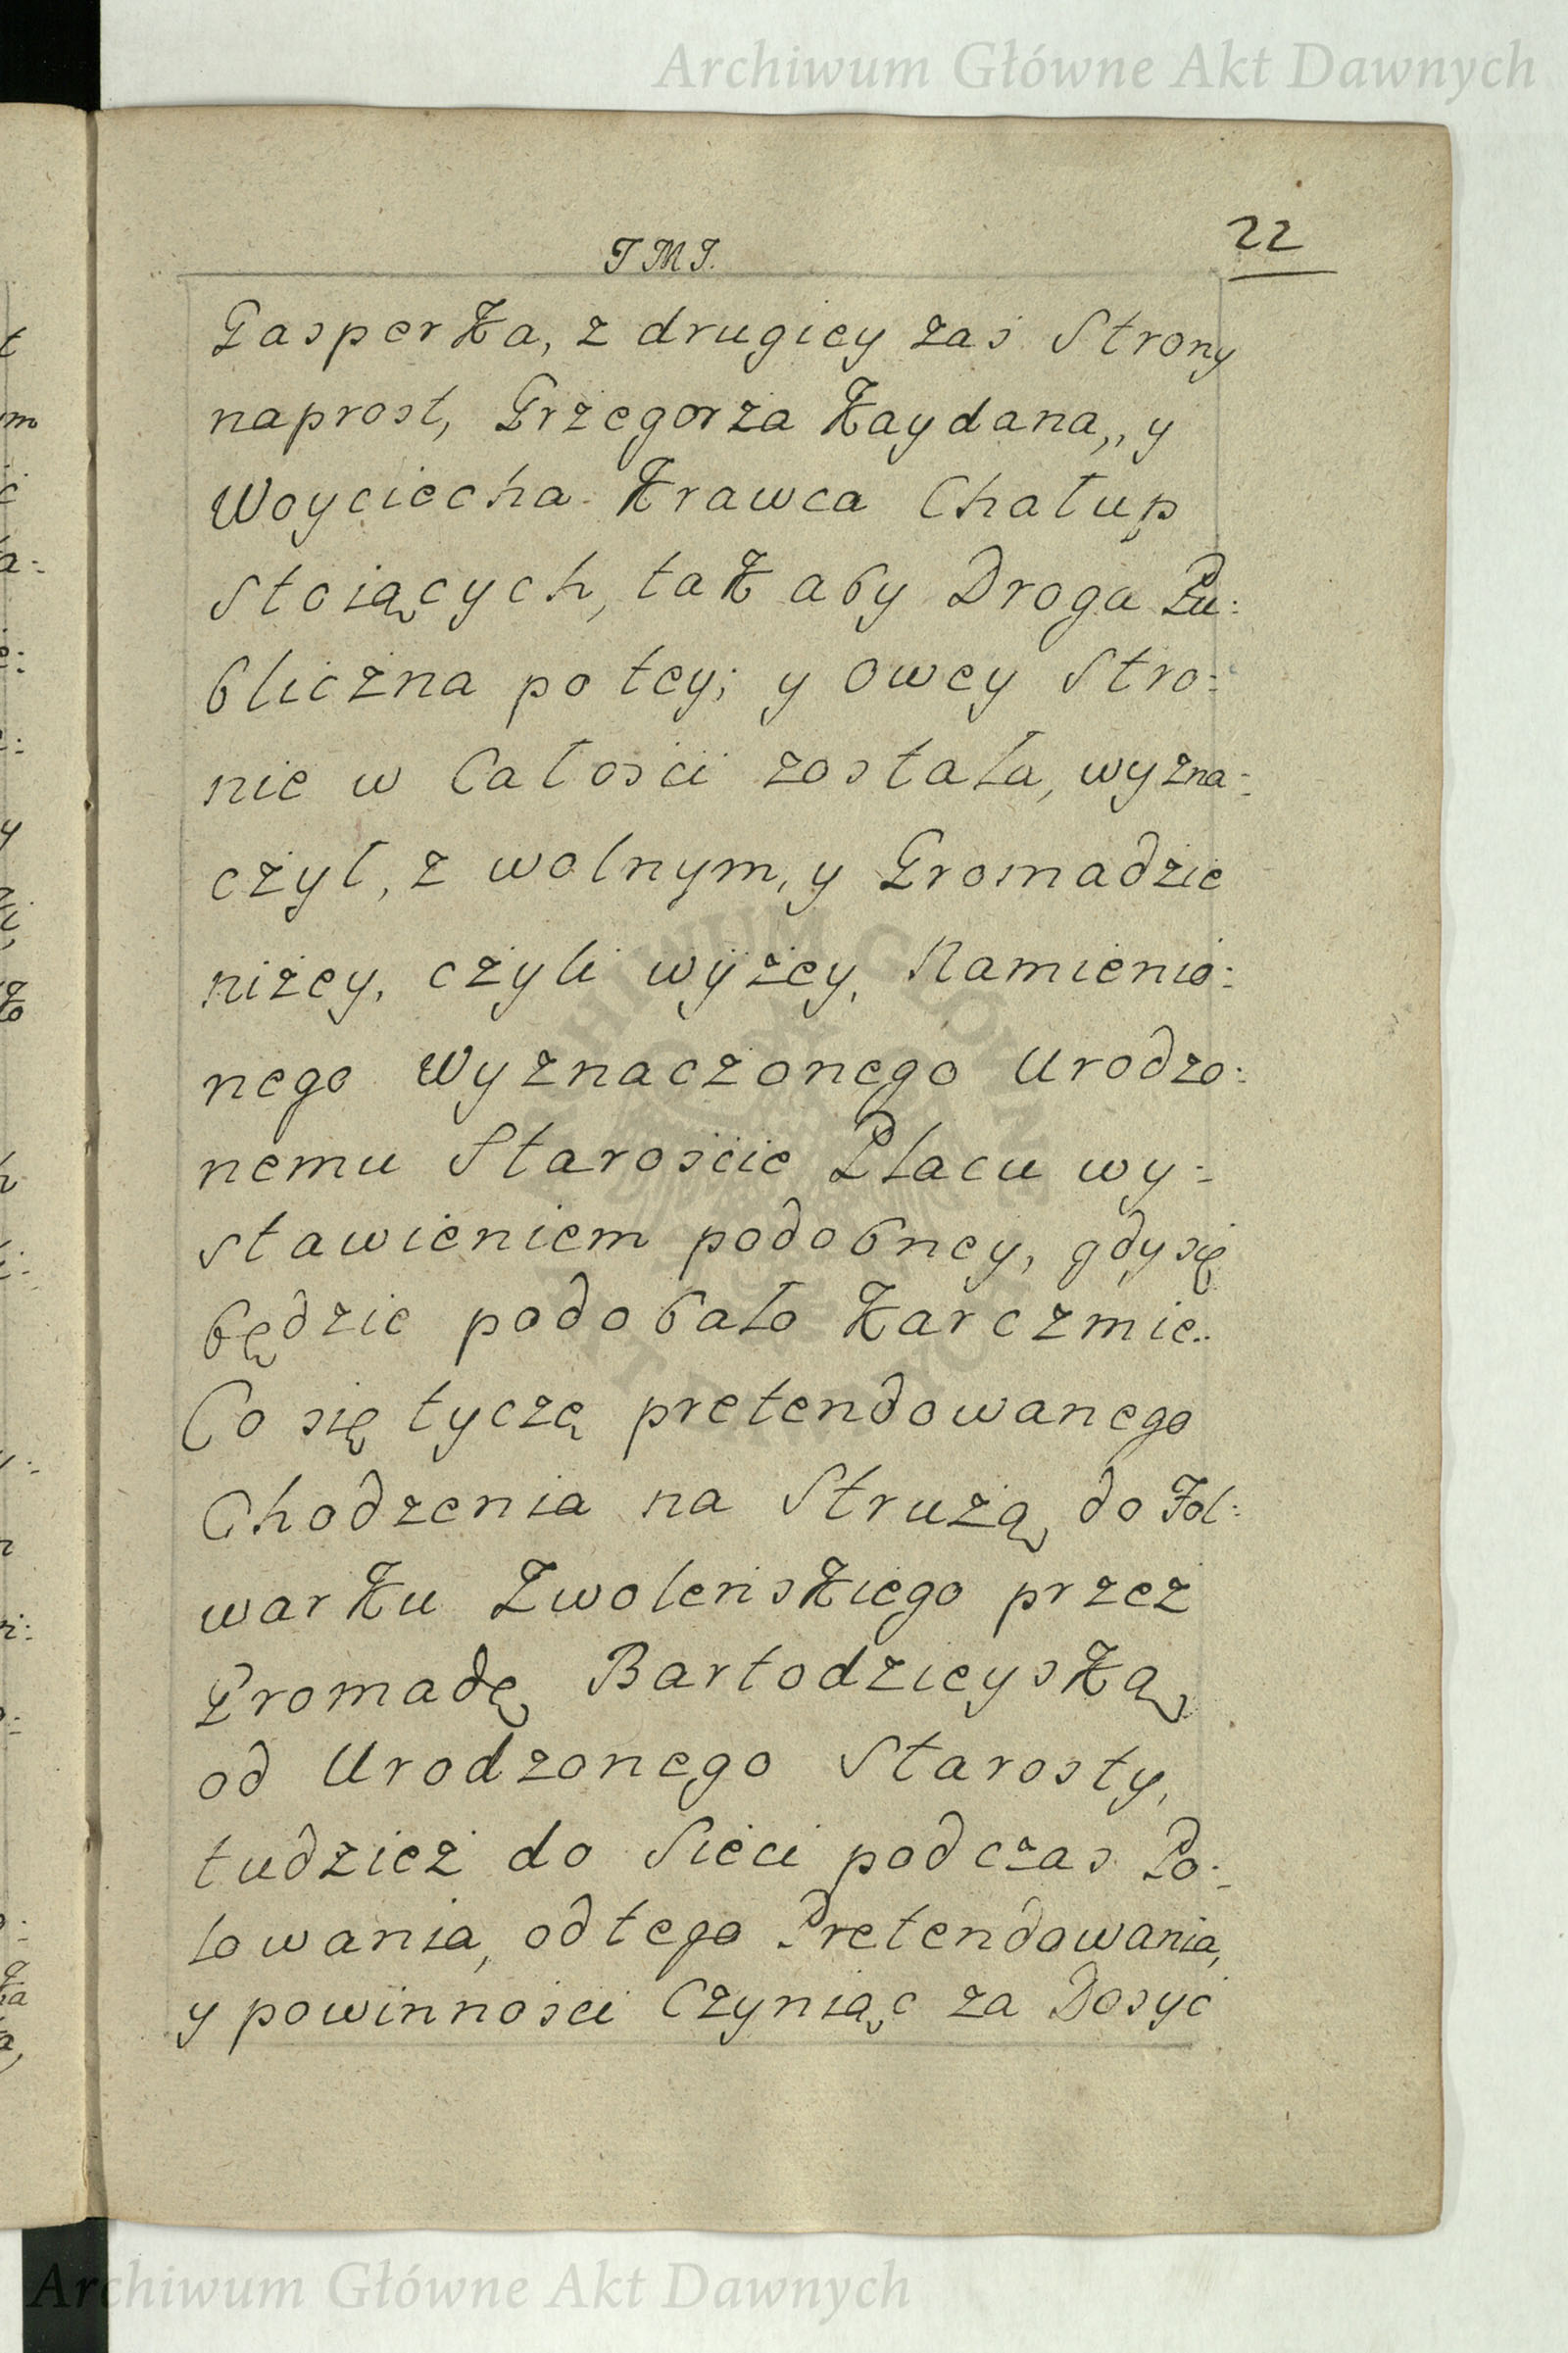 Archiwum Główne Akt Dawnych
22
J M J.
Gasperka, z drugiey zaś Strony
naprost, Grzegorża Kaydana,, y
Woyciecha Krawca Chałup
stoiących, tak aby Droga Pu:
bliczna po tey; y owey Stro:
nie w Całości została, wyzna:
czył, z wolnym, y Gromadzie
niżey, czyli wyżey, Namienio:
nego Wyznaczonego Urodzo:
nemu Starościе Placu wy:
stawieniem podobney, gdy się
będzie podobało Karczmie.
Co się tyczę pretendowanego
Chodzenia na Strużą do Fol:
warku Zwoleńskiego przez
Gromadę Bartodzieyską,
od Urodzonego Starosty,
tudzież do Sieci podczas Po:
lowania, od tego Pretendowania,
y powinności Czyniąc za Dosyć
Archiwum Główne Akt Dawnych